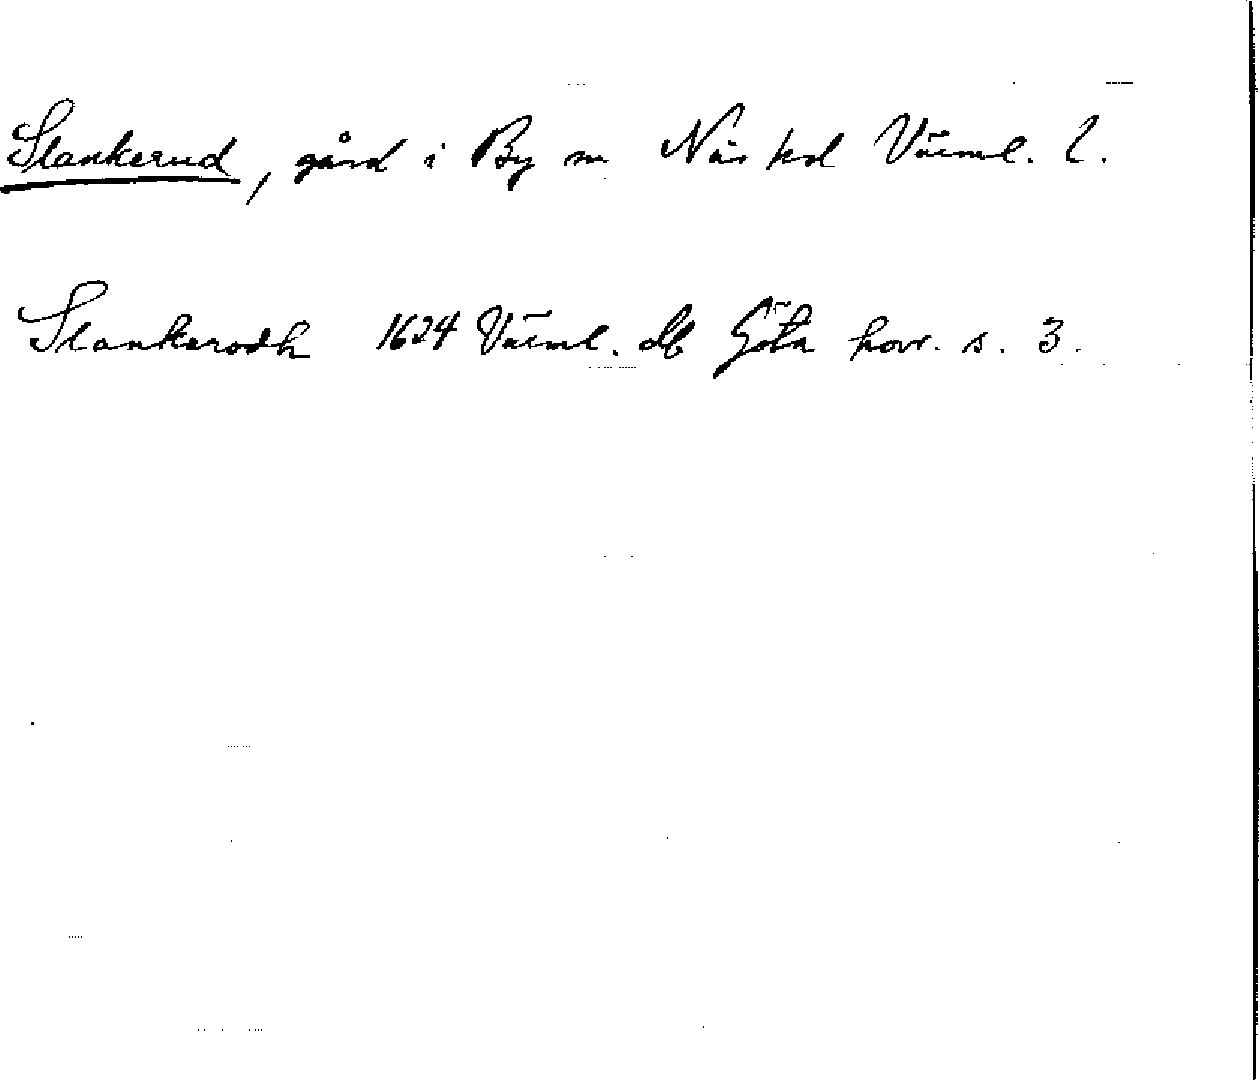 Slankerud, gård i By sn Näs hd Värml. l.
Slankerodh 1624 Värml. db Göta hovr. s. 3.